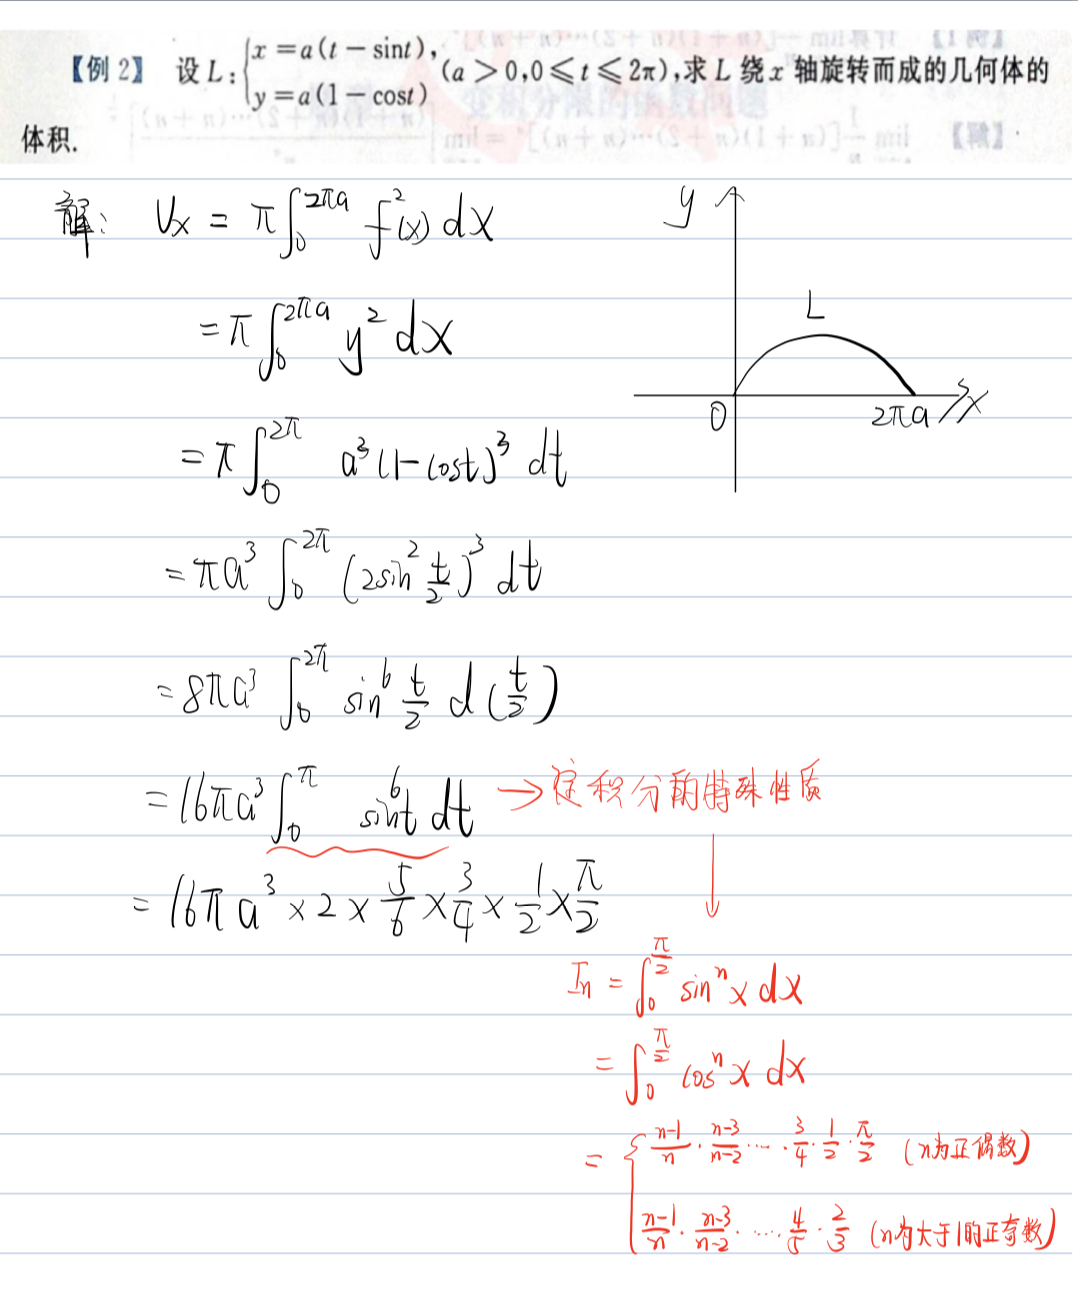 【例 2】 设 L: { x = a(t − sint), y = a(1 − cost) (a > 0, 0 ⩽ t ⩽ 2π), 求 L 绕 x 轴旋转而成的几何体的
体积.
解: Vx = π∫₀^{2πa} f²(x) dx
= π∫₀^{2πa} y² dx
= π∫₀^{2π} a³(1−cost)³ dt
= πa³ ∫₀^{2π} (2sin² t/2)³ dt
= 8πa³ ∫₀^{2π} sin⁶ t/2 d(t/2)
= 16πa³ ∫₀^{π} sin⁶t dt → 定积分的特殊性质
= 16πa³ × 2 × 5/6 × 3/4 × 1/2 × π/2
y
L
0 2πa x
In = ∫₀^{π/2} sinⁿx dx
= ∫₀^{π/2} cosⁿx dx
= { n−1/n · n−3/n−2 ··· · 3/4 · 1/2 · π/2 (n为正偶数)
n−1/n · n−3/n−2 · ···· 4/5 · 2/3 (n为大于1的正奇数)